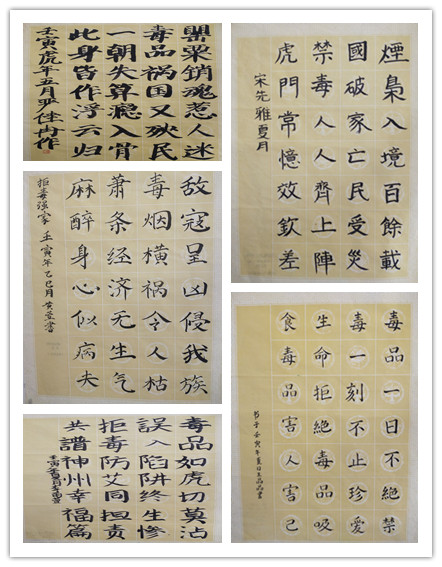 罌粟銷魂惹人迷
毒品祸国又殃民
一朝失算瘾入骨
此身皆作浮云归
壬寅虎年五月严佳冉作
煙梟入境百餘載
國破家亡民受災
禁毒人人齊上陣
虎門常憶效欽差
宋先雅夏月
敌寇呈凶侵我族
毒烟横祸令人枯
萧条经济无生气
麻醉身心似病夫
拒毒强家 壬寅年乙巳月
毒品如虎切莫沾
誤入陷阱终生惨
拒毒防艾同担责
共譜神州幸福篇
毒品一日不絕禁
毒一刻不止珍愛
生命拒絕毒品吸
食毒品害人害己
书于壬寅年夏日